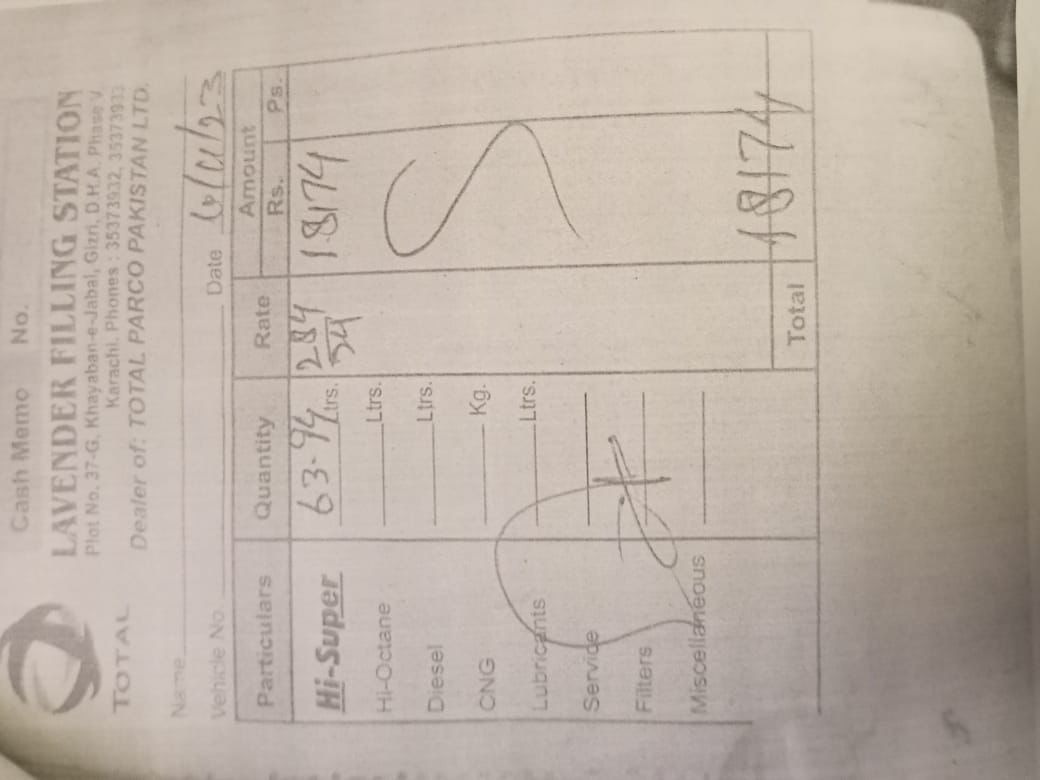 Cash Memo No.
TOTAL
LAVENDER FILLING STATION
Plot No. 37-G, Khayaban-e-Jabal, Gizri, D.H.A, Phase V,
Karachi. Phones : 35373932, 35373933
Dealer of: TOTAL PARCO PAKISTAN LTD.
Name
Vehicle No. Date
Particulars Quantity Rate Amount
Rs. Ps.
Hi-Super 63-94 Ltrs. 284 54 18174
Hi-Octane Ltrs.
Diesel Ltrs.
CNG Kg.
Lubricants Ltrs.
Service
Filters
Miscellaneous
Total 18174/